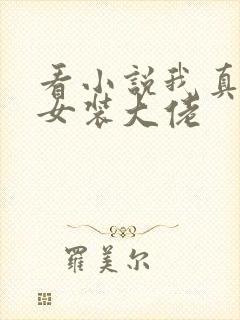 看小說我真
女裝大佬
羅美尔